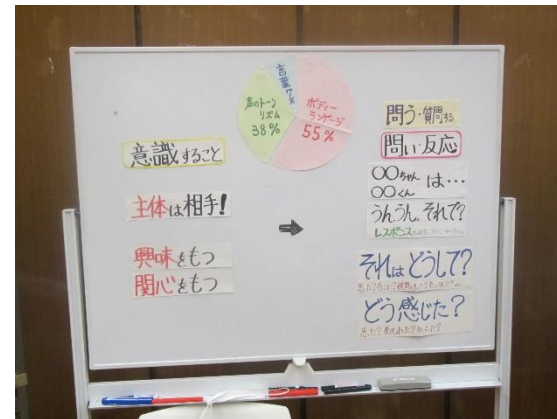 言葉 7%
声のトーン
リズム
38%
ボディー
ランゲージ
55%
意識すること
主体は相手!
興味をもつ
関心をもつ
問う・質問する
問い・反応
○○ちゃん は…
○○くん
うんうん、それで?
レスポンス
それはどうして?
どう感じた?